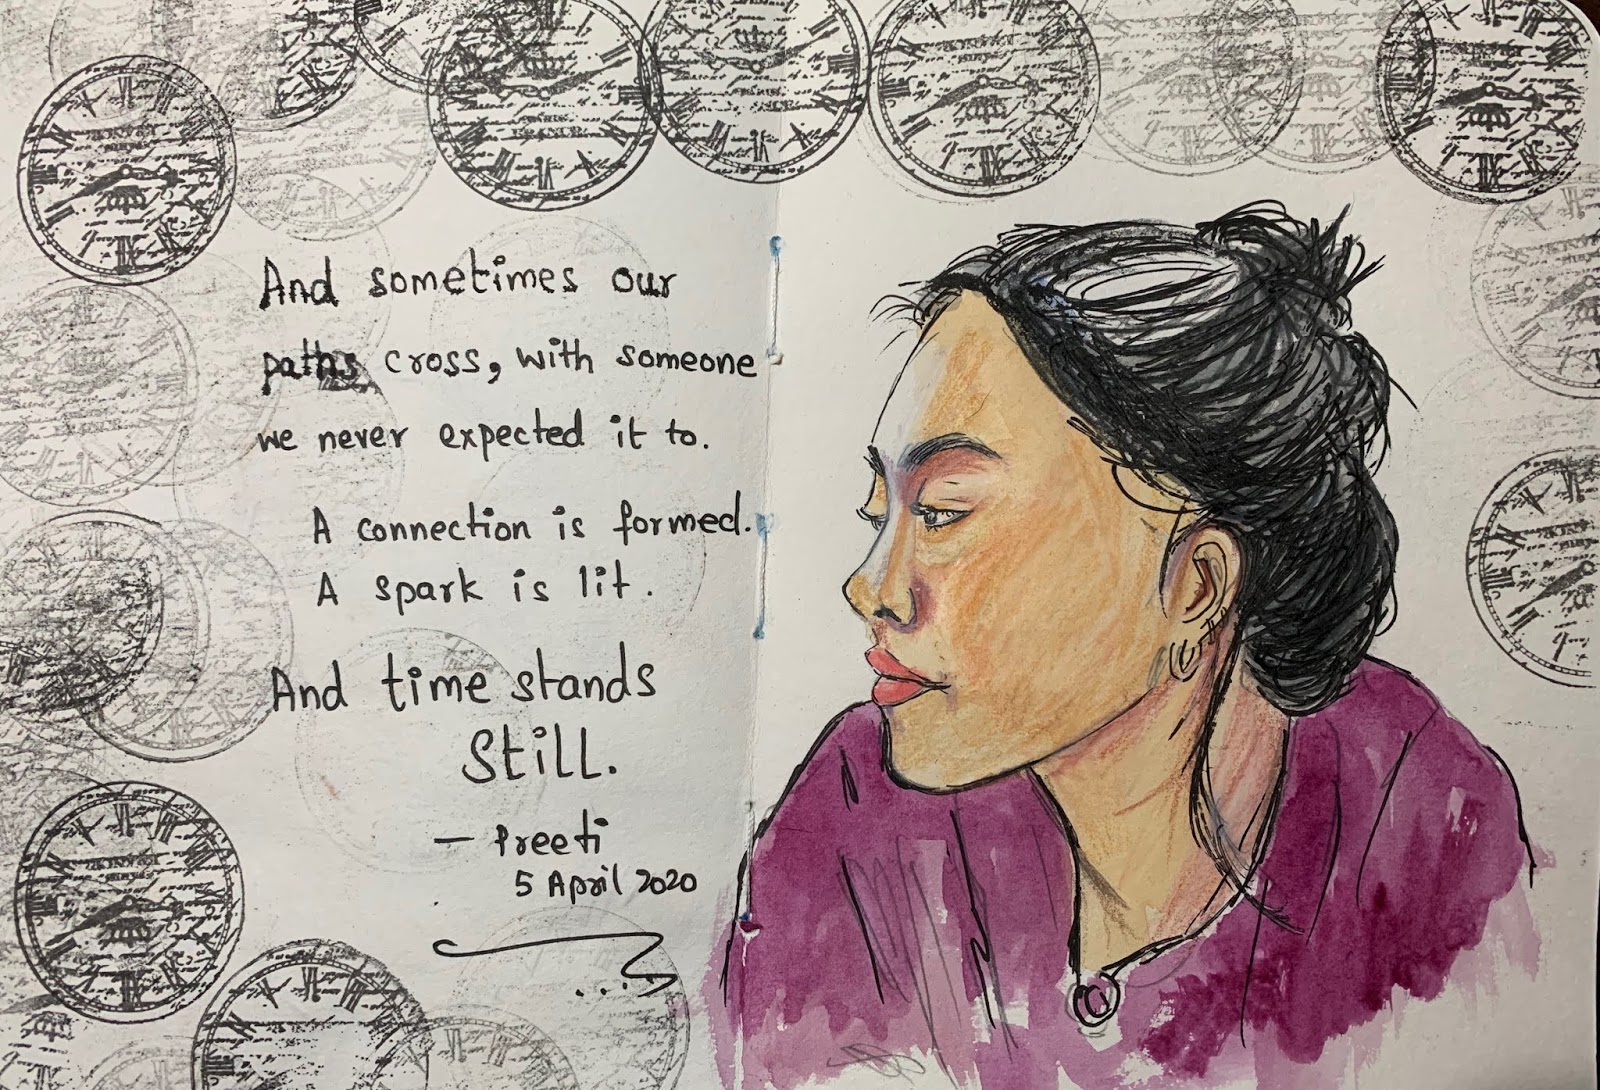 And sometimes our
paths cross, with someone
we never expected it to.
A connection is formed.
A spark is lit.
And time stands
Still.
— Preeti
5 April 2020